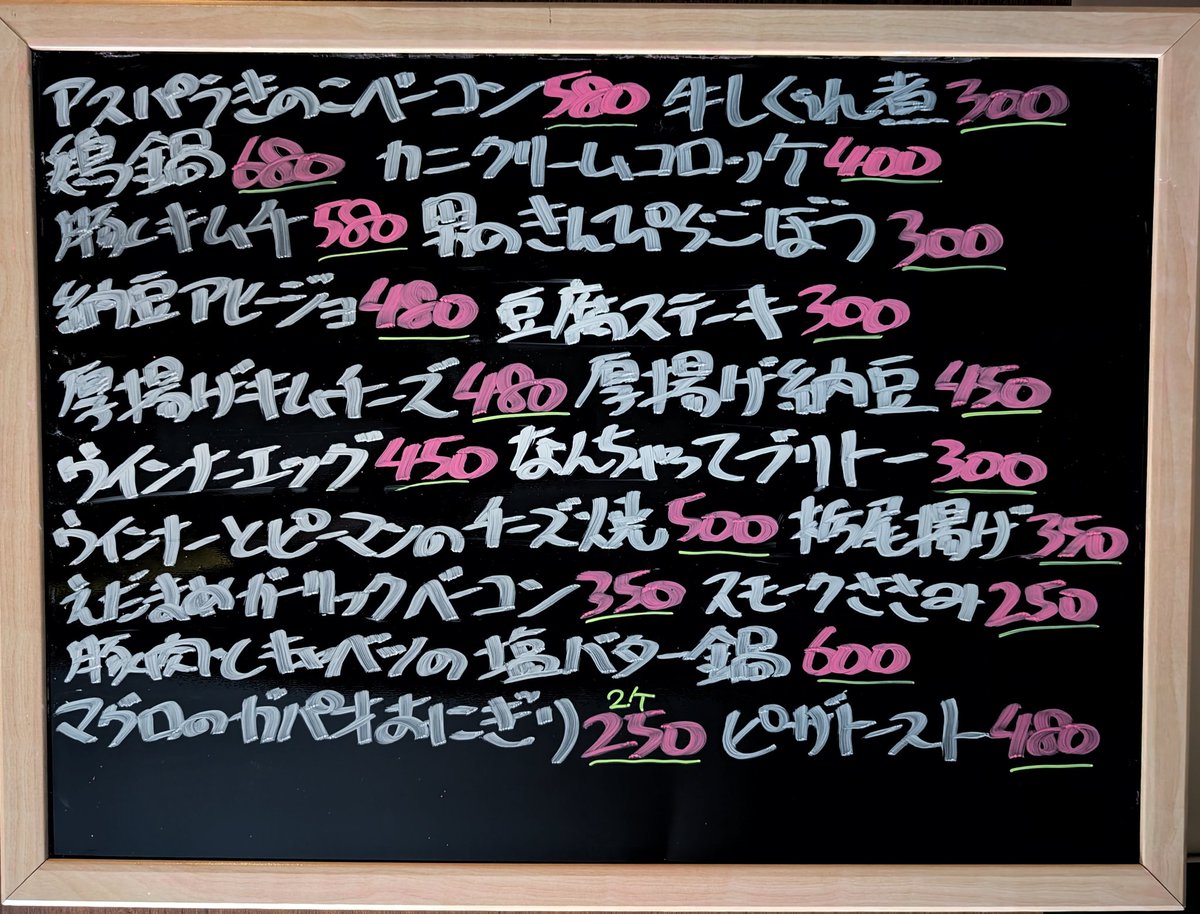 アスパラきのこベーコン580 牛しぐれ煮300
鶏鍋680 カニクリームコロッケ400
豚とキムチ580 男のきんぴらごぼう300
納豆アヒージョ480 豆腐ステーキ300
厚揚げキムチーズ480 厚揚げ納豆450
ウインナーエッグ450 なんちゃってブリトー300
ウインナーとピーマンのチーズ焼500 栃尾揚げ350
えだまめガーリックベーコン350 スモークささみ250
豚肉とキャベツの塩バター鍋600
マグロのガパオおにぎり2ケ250 ピザトースト480